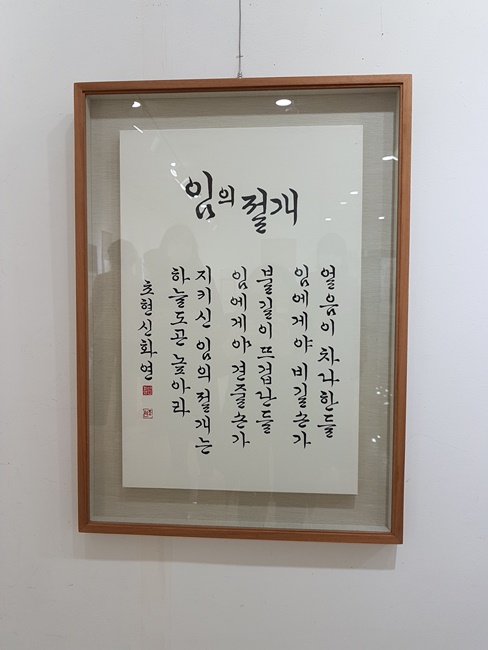 임의 절개
얼음이 차나한들
임에게야 비길손가
불길이 뜨겁난들
임에게야 견줄손가
지키신 임의 절개는
하늘도곤 높아라
초현 신화연